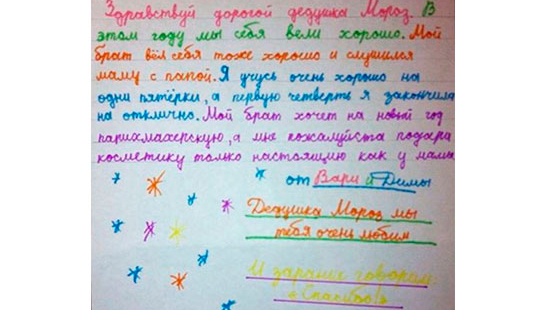 Здравствуй дорогой дедушка Мороз. В
этом году мы себя вели хорошо. Мой
брат вёл себя тоже хорошо и слушился
маму с папой. Я учусь очень хорошо на
одни пятёрки, а первую четверть я закончила
на отклично. Мой брат хочет на новый год
парихмахерскую, а мне пожалуйста подари
косметику только настоящию как у мамы
от Вари и Димы
Дедушка Мороз мы
тебя очень любим
И заранее говорим:
"Спасибо!"